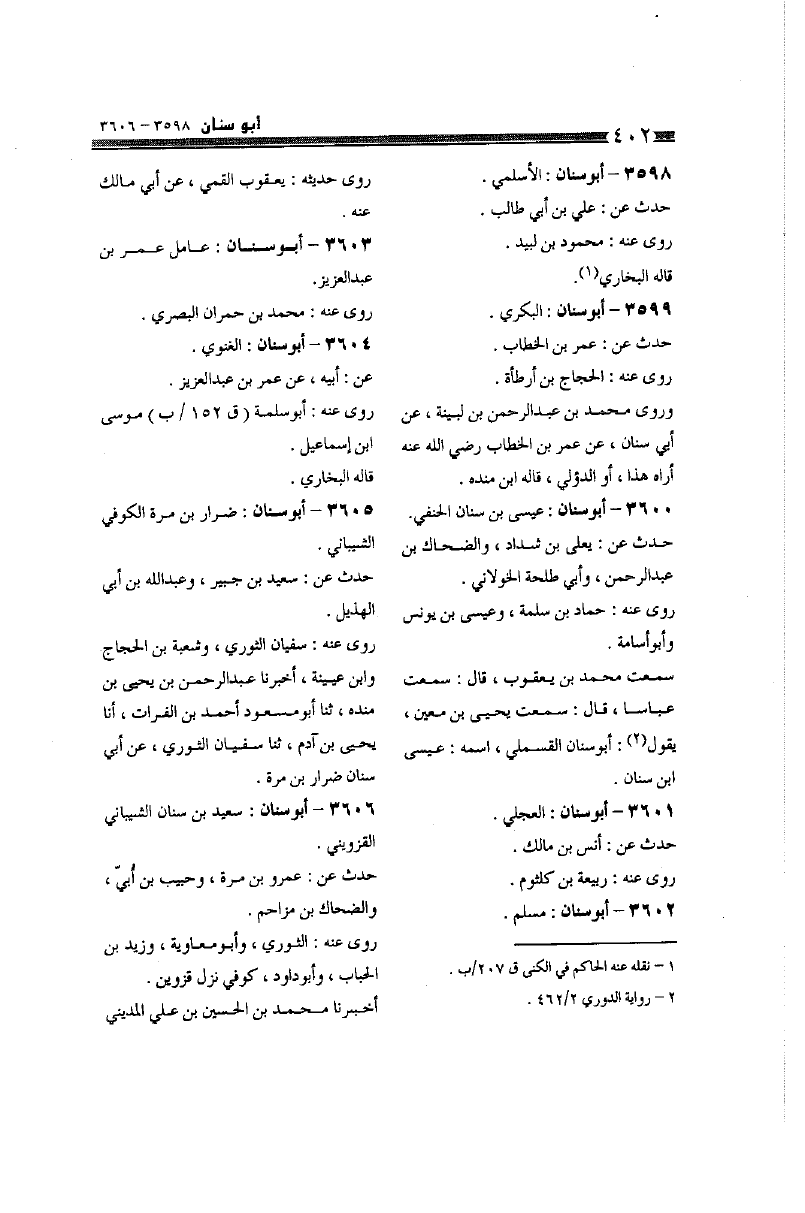 ٤٠٢
أبو سنان ٣٥٩٨ – ٣٦٠٦
٣٥٩٨ – أبوسنان : الأسلمي .
حدث عن : علي بن أبي طالب .
روى عنه : محمود بن لبيد .
قاله البخاري(١).
٣٥٩٩ – أبوسنان : البكري .
حدث عن : عمر بن الخطاب .
روى عنه : الحجاج بن أرطأة .
وروى محمد بن عبدالرحمن بن لبينة ، عن
أبي سنان ، عن عمر بن الخطاب رضي الله عنه
أراه هذا ، أو الدؤلي ، قاله ابن منده .
٣٦٠٠ – أبوسنان : عيسى بن سنان الحنفي.
حدث عن : يعلى بن شداد ، والضحاك بن
عبدالرحمن ، وأبي طلحة الخولاني .
روى عنه : حماد بن سلمة ، وعيسى بن يونس
وأبوأسامة .
سمعت محمد بن يعقوب ، قال : سمعت
عباسا ، قال : سمعت يحيى بن معين ،
يقول(٢) : أبوسنان القسملي ، اسمه : عيسى
ابن سنان .
٣٦٠١ – أبوسنان : العجلي .
حدث عن : أنس بن مالك .
روى عنه : ربيعة بن كلثوم .
٣٦٠٢ – أبوسنان : مسلم .
١ – نقله عنه الحاكم في الكنى ق ٢٠٧/ب .
٢ – رواية الدوري ٤٦٢/٢ .
روى حديثه : يعقوب القمي ، عن أبي مالك
عنه .
٣٦٠٣ – أبوسنان : عامل عمر بن
عبدالعزيز.
روى عنه : محمد بن حمران البصري .
٣٦٠٤ – أبوسنان : الغنوي .
عن : أبيه ، عن عمر بن عبدالعزيز .
روى عنه : أبوسلمة ( ق ١٥٢ / ب ) موسى
ابن إسماعيل .
قاله البخاري .
٣٦٠٥ – أبوسنان : ضرار بن مرة الكوفي
الشيباني .
حدث عن : سعيد بن جبير ، وعبدالله بن أبي
الهذيل .
روى عنه : سفيان الثوري ، وشعبة بن الحجاج
وابن عيينة ، أخبرنا عبدالرحمن بن يحيى بن
منده ، ثنا أبومسعود أحمد بن الفرات ، أنا
يحيى بن آدم ، ثنا سفيان الثوري ، عن أبي
سنان ضرار بن مرة .
٣٦٠٦ – أبوسنان : سعيد بن سنان الشيباني
القزويني .
حدث عن : عمرو بن مرة ، وحبيب بن أُبيّ ،
والضحاك بن مزاحم .
روى عنه : الثوري ، وأبومعاوية ، وزيد بن
الحباب ، وأبوداود ، كوفي نزل قزوين .
أخبرنا محمد بن الحسين بن علي المديني